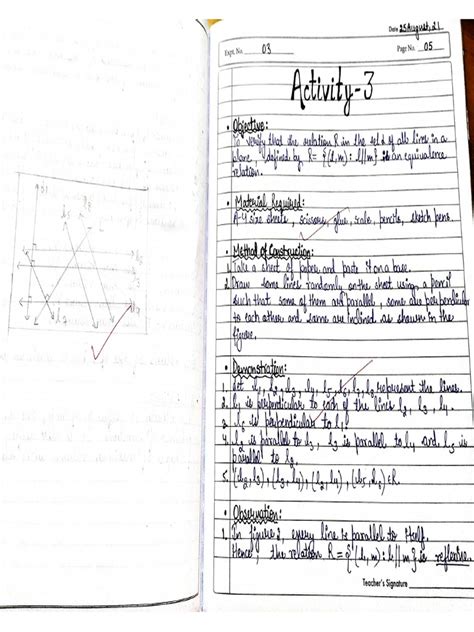 Date 25 August, 21
Expt. No. 03
Page No. 05
Activity-3
• Objective:
To verify that the relation R in the set L of all lines in a
plane, defined by R = {(l, m) : l//m} is an equivalence
relation.
• Material Required:
A-4 size sheets, scissors, glue, scale, pencils, sketch pens.
• Method of Construction:
1. Take a sheet of paper and paste it on a base.
2. Draw some lines randomly on the sheet using a pencil
such that some of them are parallel, some are perpendicular
to each other and some are inclined as shown in the
figure.
• Demonstration:
1. Let l1, l2, l3, l4, l5, l6, l7, l8 represent the lines.
2. l1 is perpendicular to each of the lines l2, l3, l4.
3. l6 is perpendicular to l7.
4. l2 is parallel to l3, l3 is parallel to l4 and l5 is
parallel to l8.
5. (l2, l3), (l3, l4), (l2, l4), (l5, l8) ∈ R.
• Observation:
1. In figure 2, every line is parallel to itself.
Hence, the relation R = {(l, m) : l//m} is reflexive.
Teacher's Signature